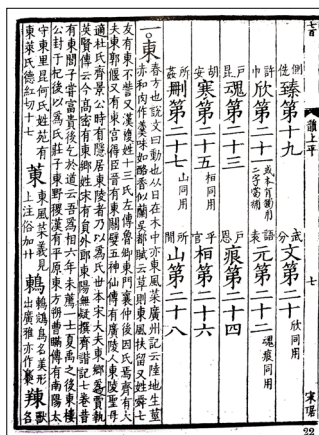 側詵 臻第十九
武分 文第二十 欣同用
欣第二十一
語袁 元第二十二 魂痕同用
戶昆 魂第二十三
戶恩 痕第二十四
胡安 寒第二十五 桓同用
乎官 桓第二十六
所姦 刪第二十七 山同用
所閒 山第二十八
一。東 春方也說文曰動也从日在木中亦東風菜廣州記云陸地生莖
赤和肉作羹味如酪香似蘭吳都賦云草則東風扶留又姓舜七
友有東不訾又漢複姓十三氏左傳魯卿東門襄仲後因氏焉齊有大
夫東郭偃又有東宮得臣晉有東關嬖五神仙傳有廣陵人東陵聖母
適杜氏齊景公時有隱居東陵者乃以為氏世本宋大夫東鄉為賈執
英賢傳云今高密有東鄉姓宋有員外郎東陽無疑撰齊諧記七卷昔
有東閭子嘗富貴後乞於道云吾為相六年未薦一士夏禹之後東樓
公封于杞後以為氏莊子東野稷漢有平原東方朔曹瞞傳有南陽太
守東里昆何氏姓苑有
東萊氏德紅切十七
菄 東風菜義見
上注俗加艹
鶇 鶇鵍鳥名美形
出廣雅亦作
韻上平
七
22